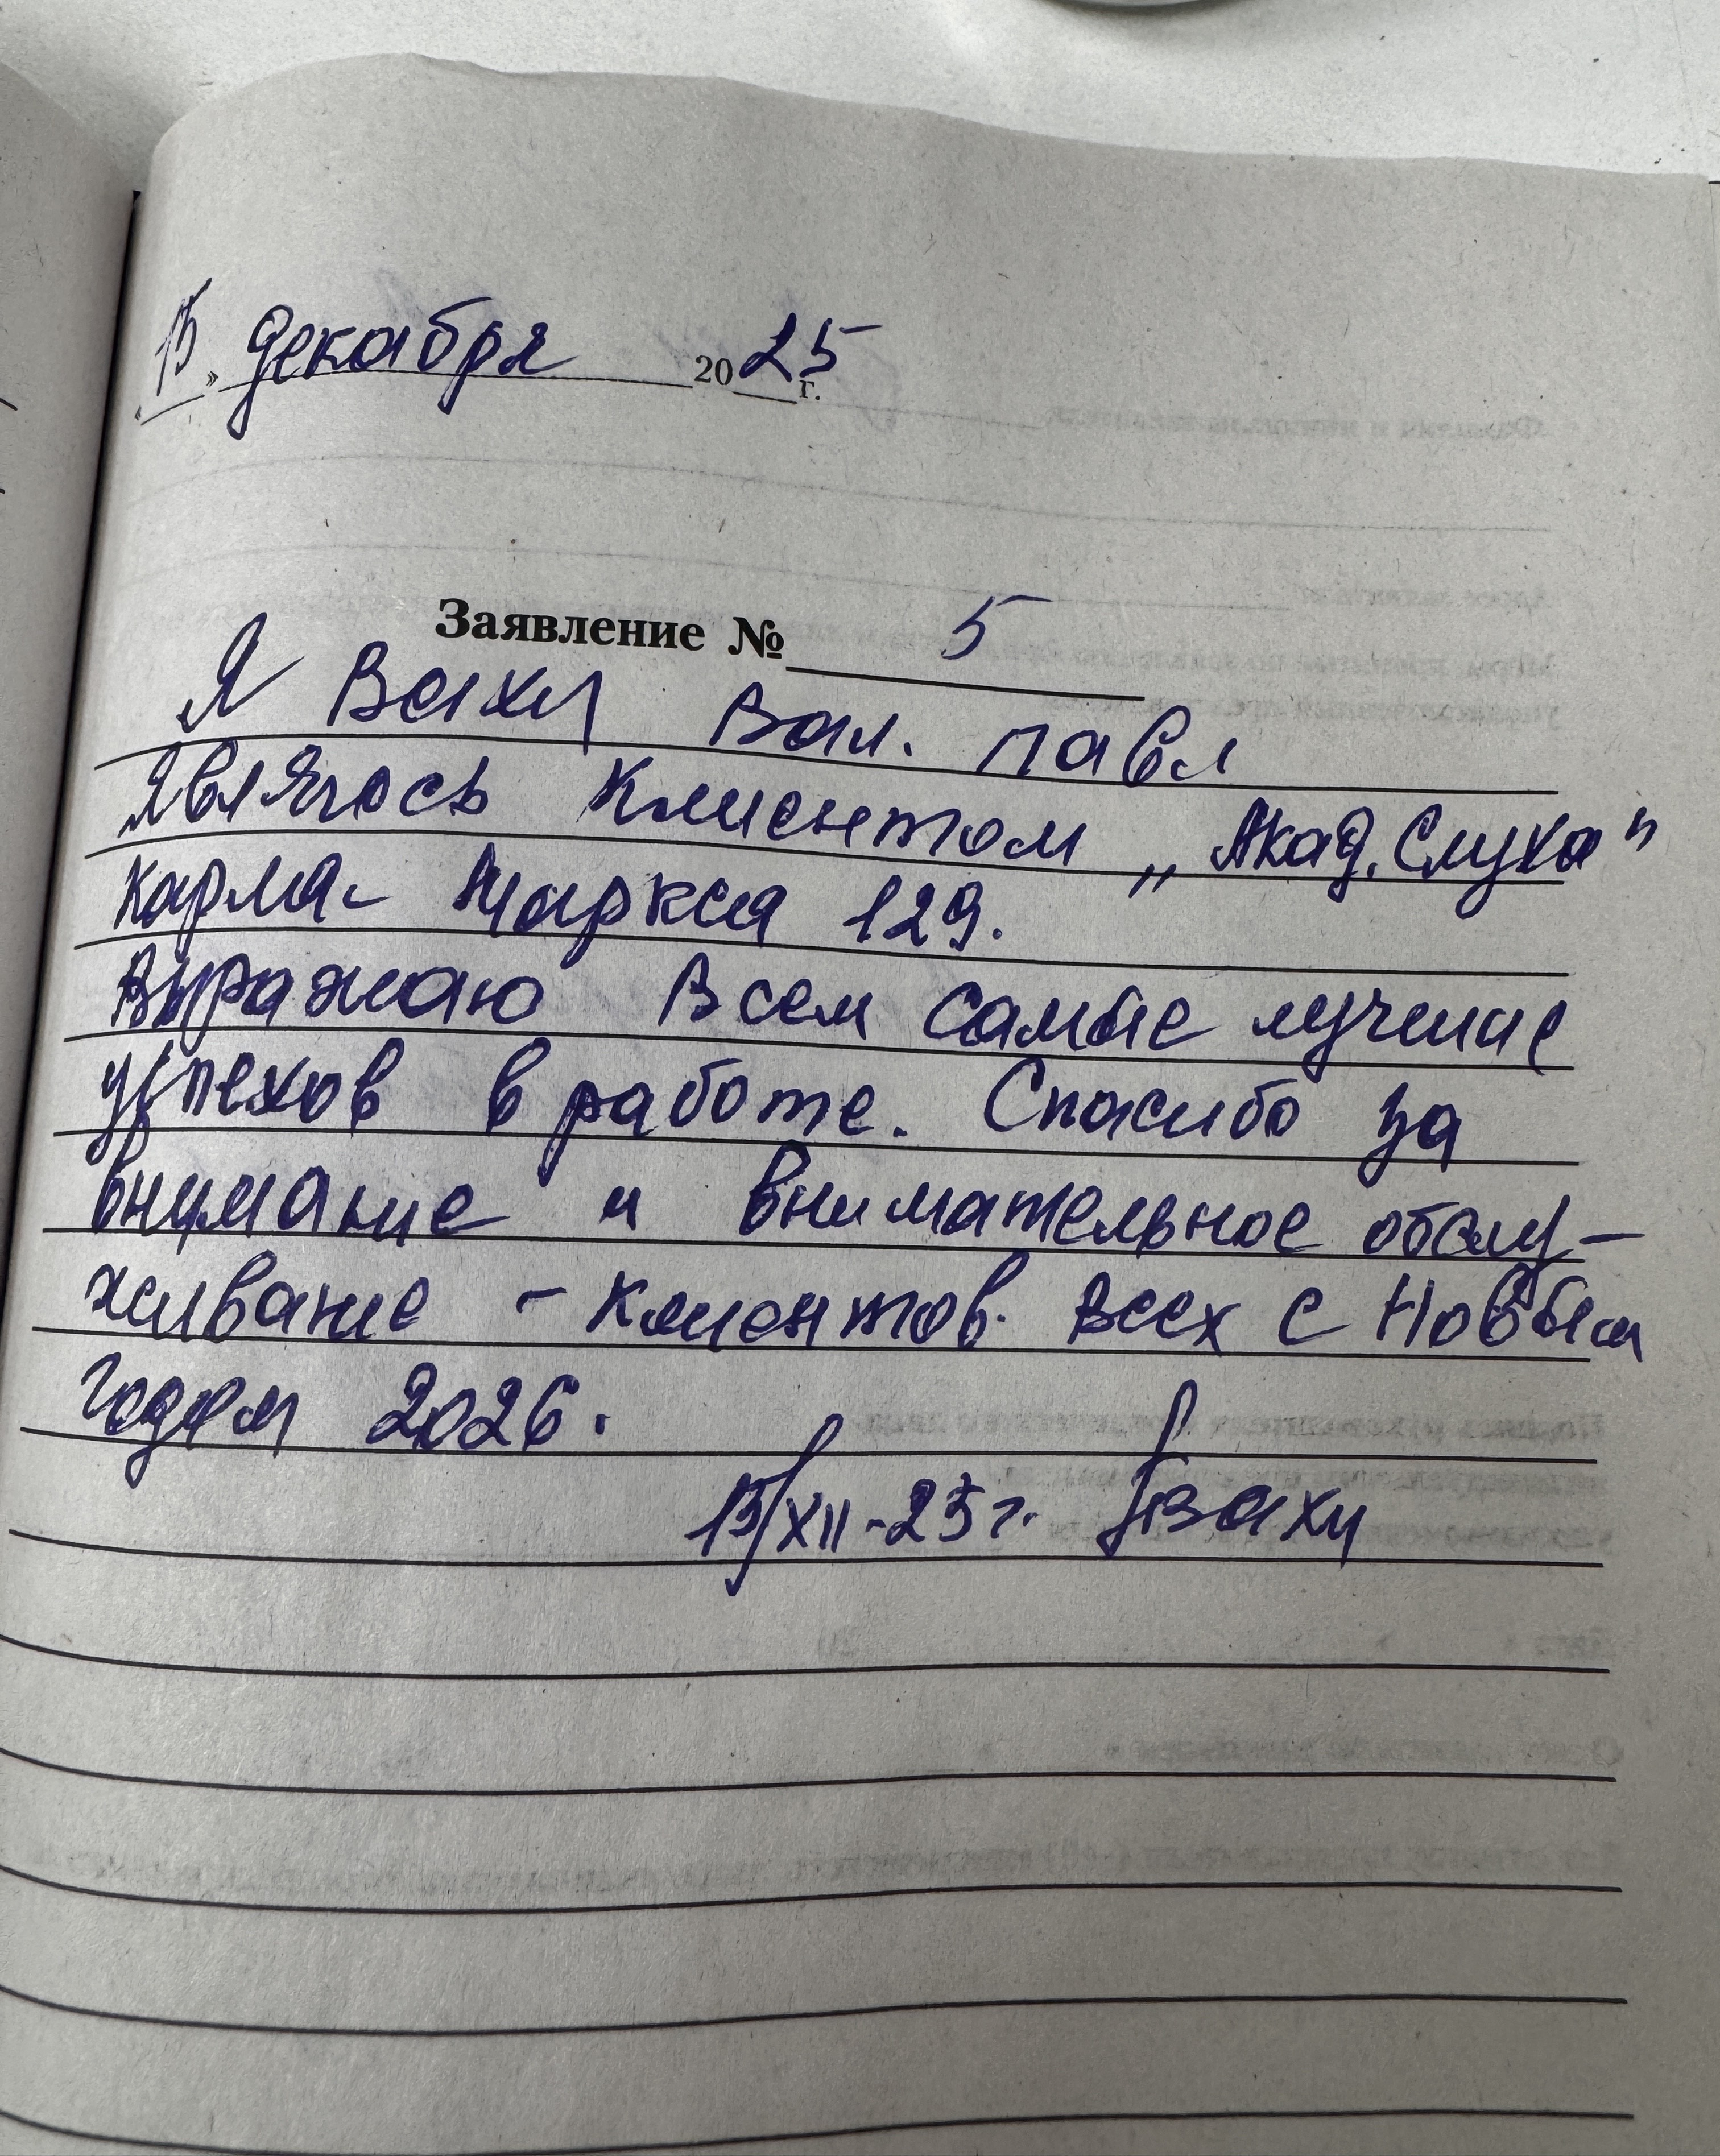 «15» декабря 2025 г.
Заявление № 5
Я Вахи Вал. Павл
являюсь клиентом „Акад. Слуха"
Карла- Маркса 129.
Выражаю Всем самые лучшие
успехов в работе. Спасибо за
внимание и внимательное обслу-
живание - клиентов. Всех с Новым
годом 2026.
15/XII-25г. Вахи